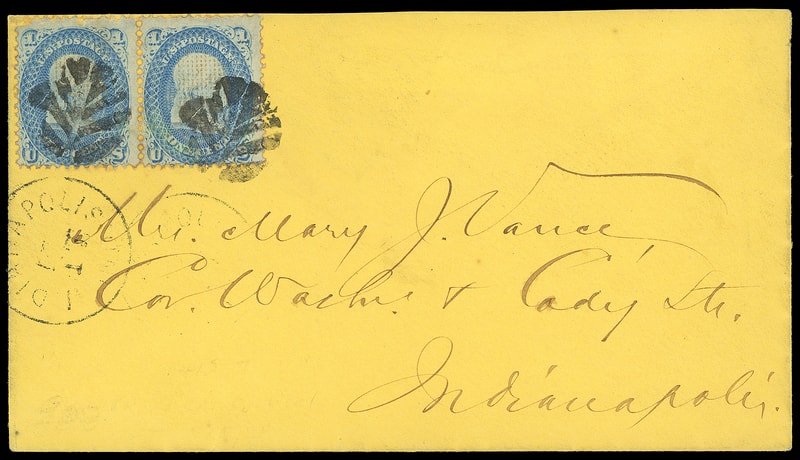 U.S. POSTAGE
U.S. POSTAGE
ONE CENT
INDIANAPOLIS
Mrs. Mary J. Vance,
Cor. Washn. & Cady Sts.
Indianapolis.